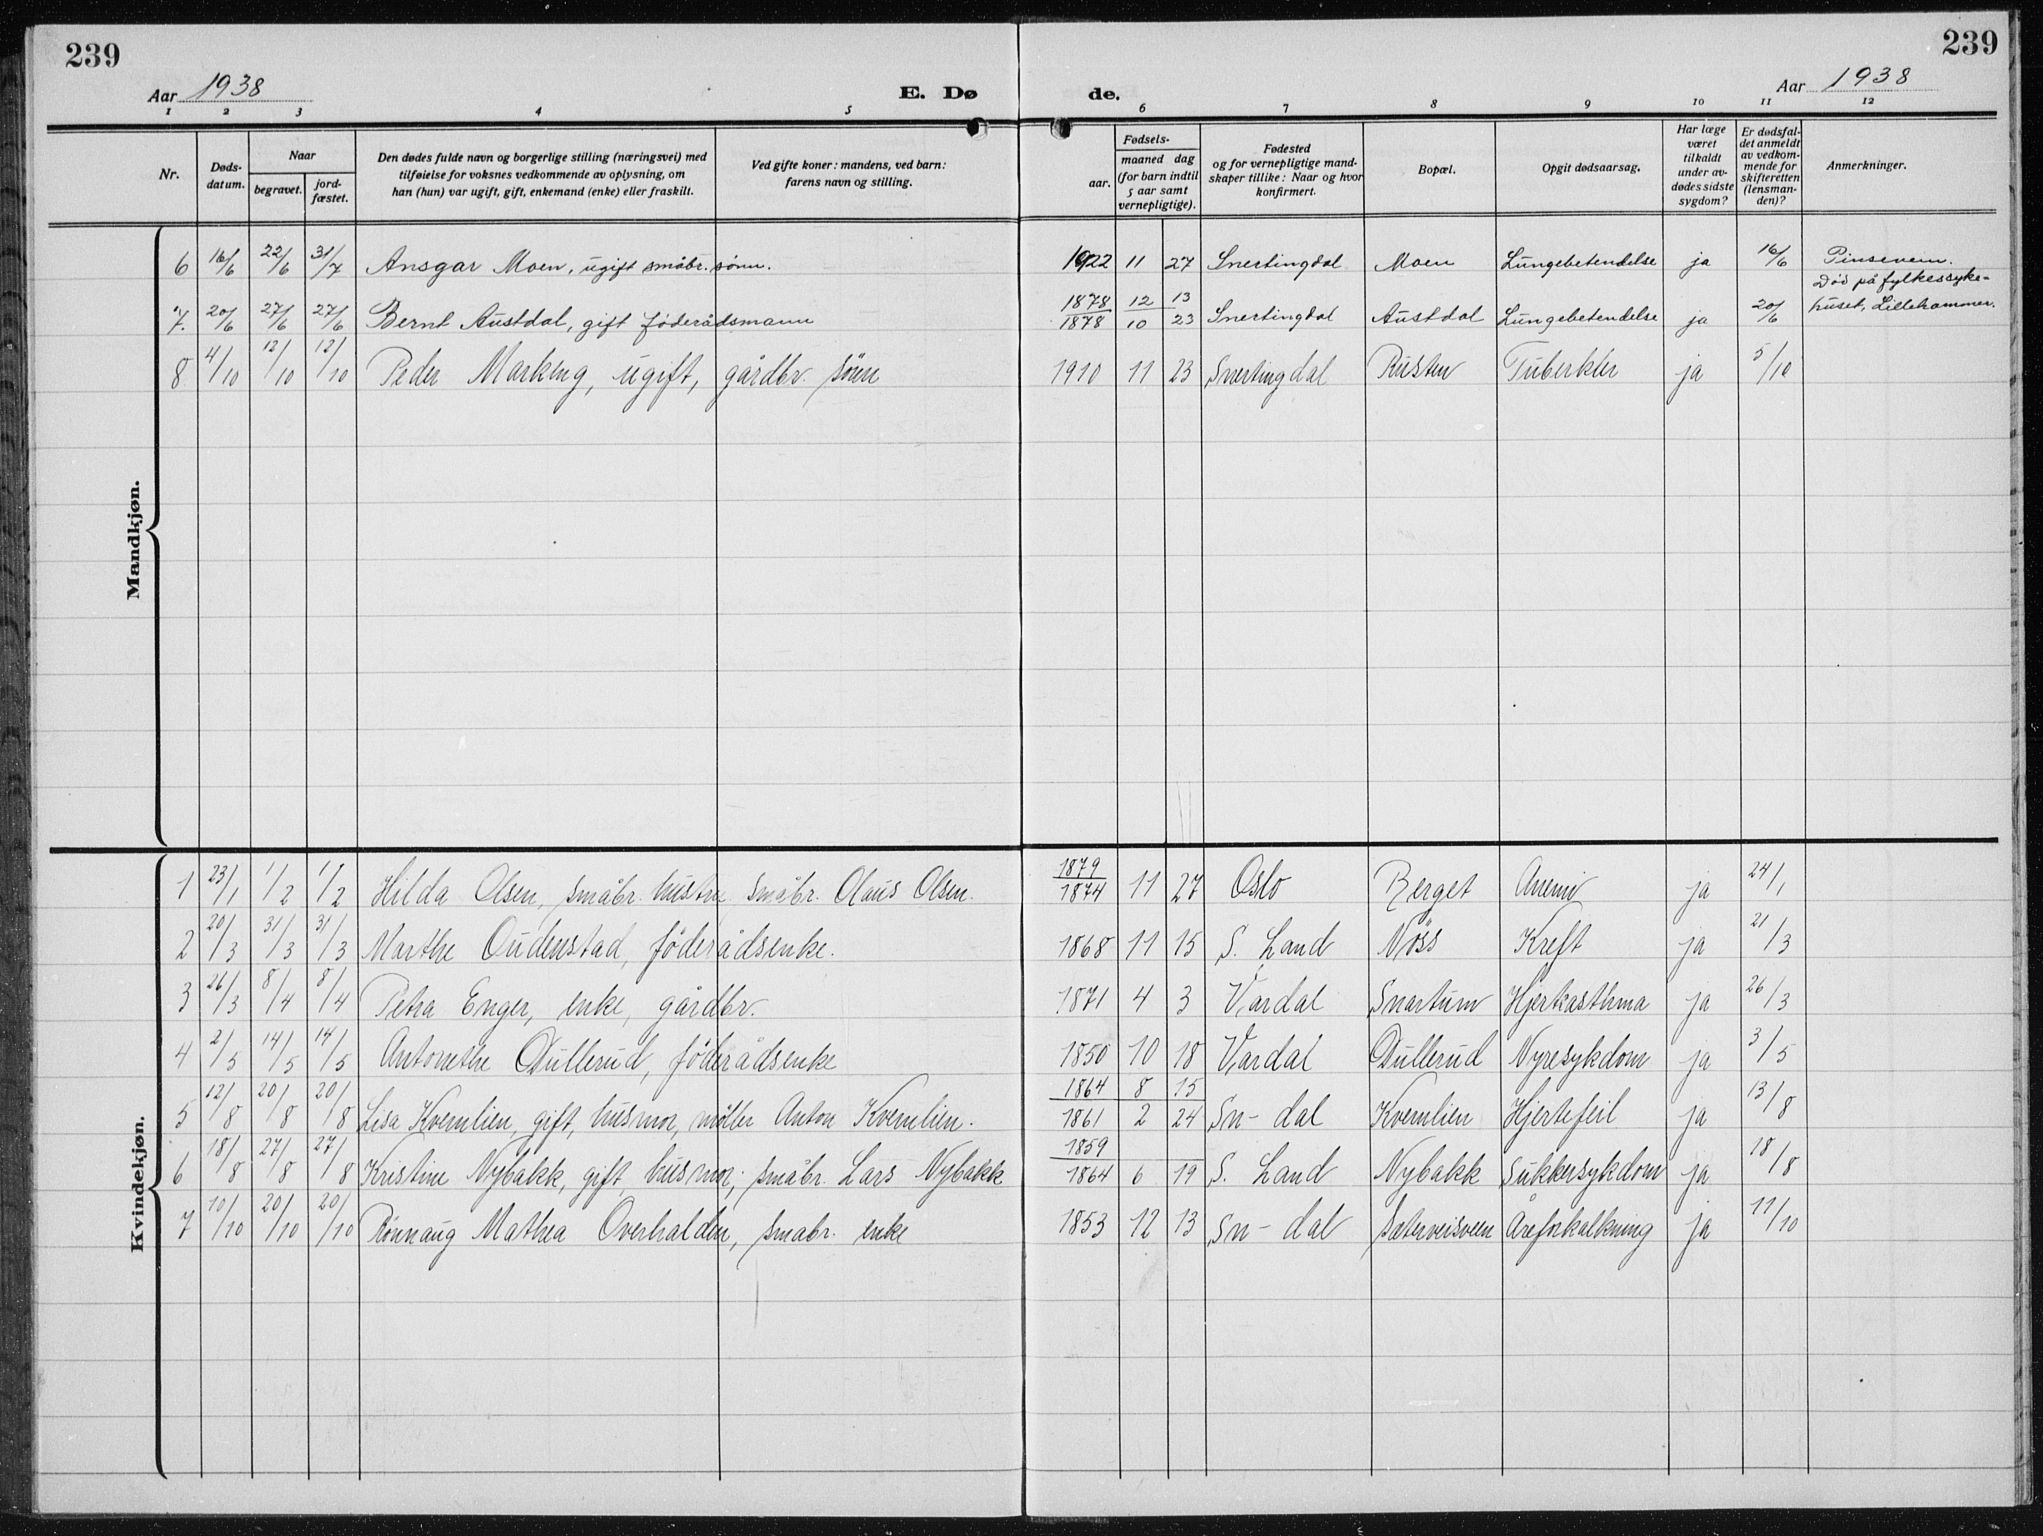 239
239
Aar 1938
E. Dø
de.
Aar 1938
1 2 3 4 5 6 7 8 9 10 11 12
Nr.
Døds-
datum.
Naar
begravet.
jord-
fæstet.
Den dødes fulde navn og borgerlige stilling (næringsvei) med
tilføielse for voksnes vedkommende av oplysning, om
han (hun) var ugift, gift, enkemand (enke) eller fraskilt.
Ved gifte koner: mandens, ved barn:
farens navn og stilling.
Fødsels-
aar.
maaned dag
(for barn indtil
5 aar samt
vernepligtige).
Fødested
og for vernepligtige mand-
skaper tillike: Naar og hvor
konfirmert.
Bopæl.
Opgit dødsaarsag.
Har læge
været
tilkaldt
under av-
dødes sidste
sygdom?
Er dødsfal-
det anmeldt
av vedkom-
mende for
skifteretten
(lensman-
den)?
Anmerkninger.
Mandkjøn.
6 16/6 22/6 31/7 Ansgar Moen, ugift småbr. sønn. 1922 11 27 Snertingdal Moen Lungebetendelse ja 16/6 Pinsevenn.
Död på fylkessyke-
1878 12 13
huset, Lillehammer.
7. 20/6 27/6 27/6 Bernt Austdal, gift föderådsmann 1878 10 23 Snertingdal Austdal Lungebetendelse ja 20/6
8 4/10 12/10 12/10 Peder Markeng, ugift, gårdbr. sönn 1910 11 23 Snertingdal Rusten Tuberkler ja 5/10
Kvindekjøn.
1879
1 23/1 1/2 1/2 Hilda Olsen, småbr. hustru småbr. Olaus Olsen. 1874 11 27 Oslo Berget Anemi ja 24/1
2 20/3 31/3 31/3 Marthe Oudenstad, föderådsenke. 1868 11 15 S. Land Nöss Kreft ja 21/3
3 26/3 8/4 8/4 Petra Enger, enke, gårdbr. 1871 4 3 Vardal Snartum Hjerteasthma ja 26/3
4 2/5 14/5 14/5 Antonethe Dullerud, föderådsenke 1850 10 18 Vardal Dullerud Nyresykdom ja 3/5
1864 8 15
5 12/8 20/8 20/8 Lisa Kvernlien, gift, husmor, møller Anton Kvernlien. 1861 2 24 Sn-dal Kvernlien Hjertefeil ja 13/8
1859
6 18/8 27/8 27/8 Kristine Nybakk, gift, husmor, småbr. Lars Nybakk 1864 6 19 S. Land Nybakk Sukkersykdom ja 18/8
7 10/10 20/10 20/10 Rønnaug Mathea Overhalden, småbr. enke 1853 12 13 Sn-dal Sæterveisveen Åreforkalkning ja 11/10